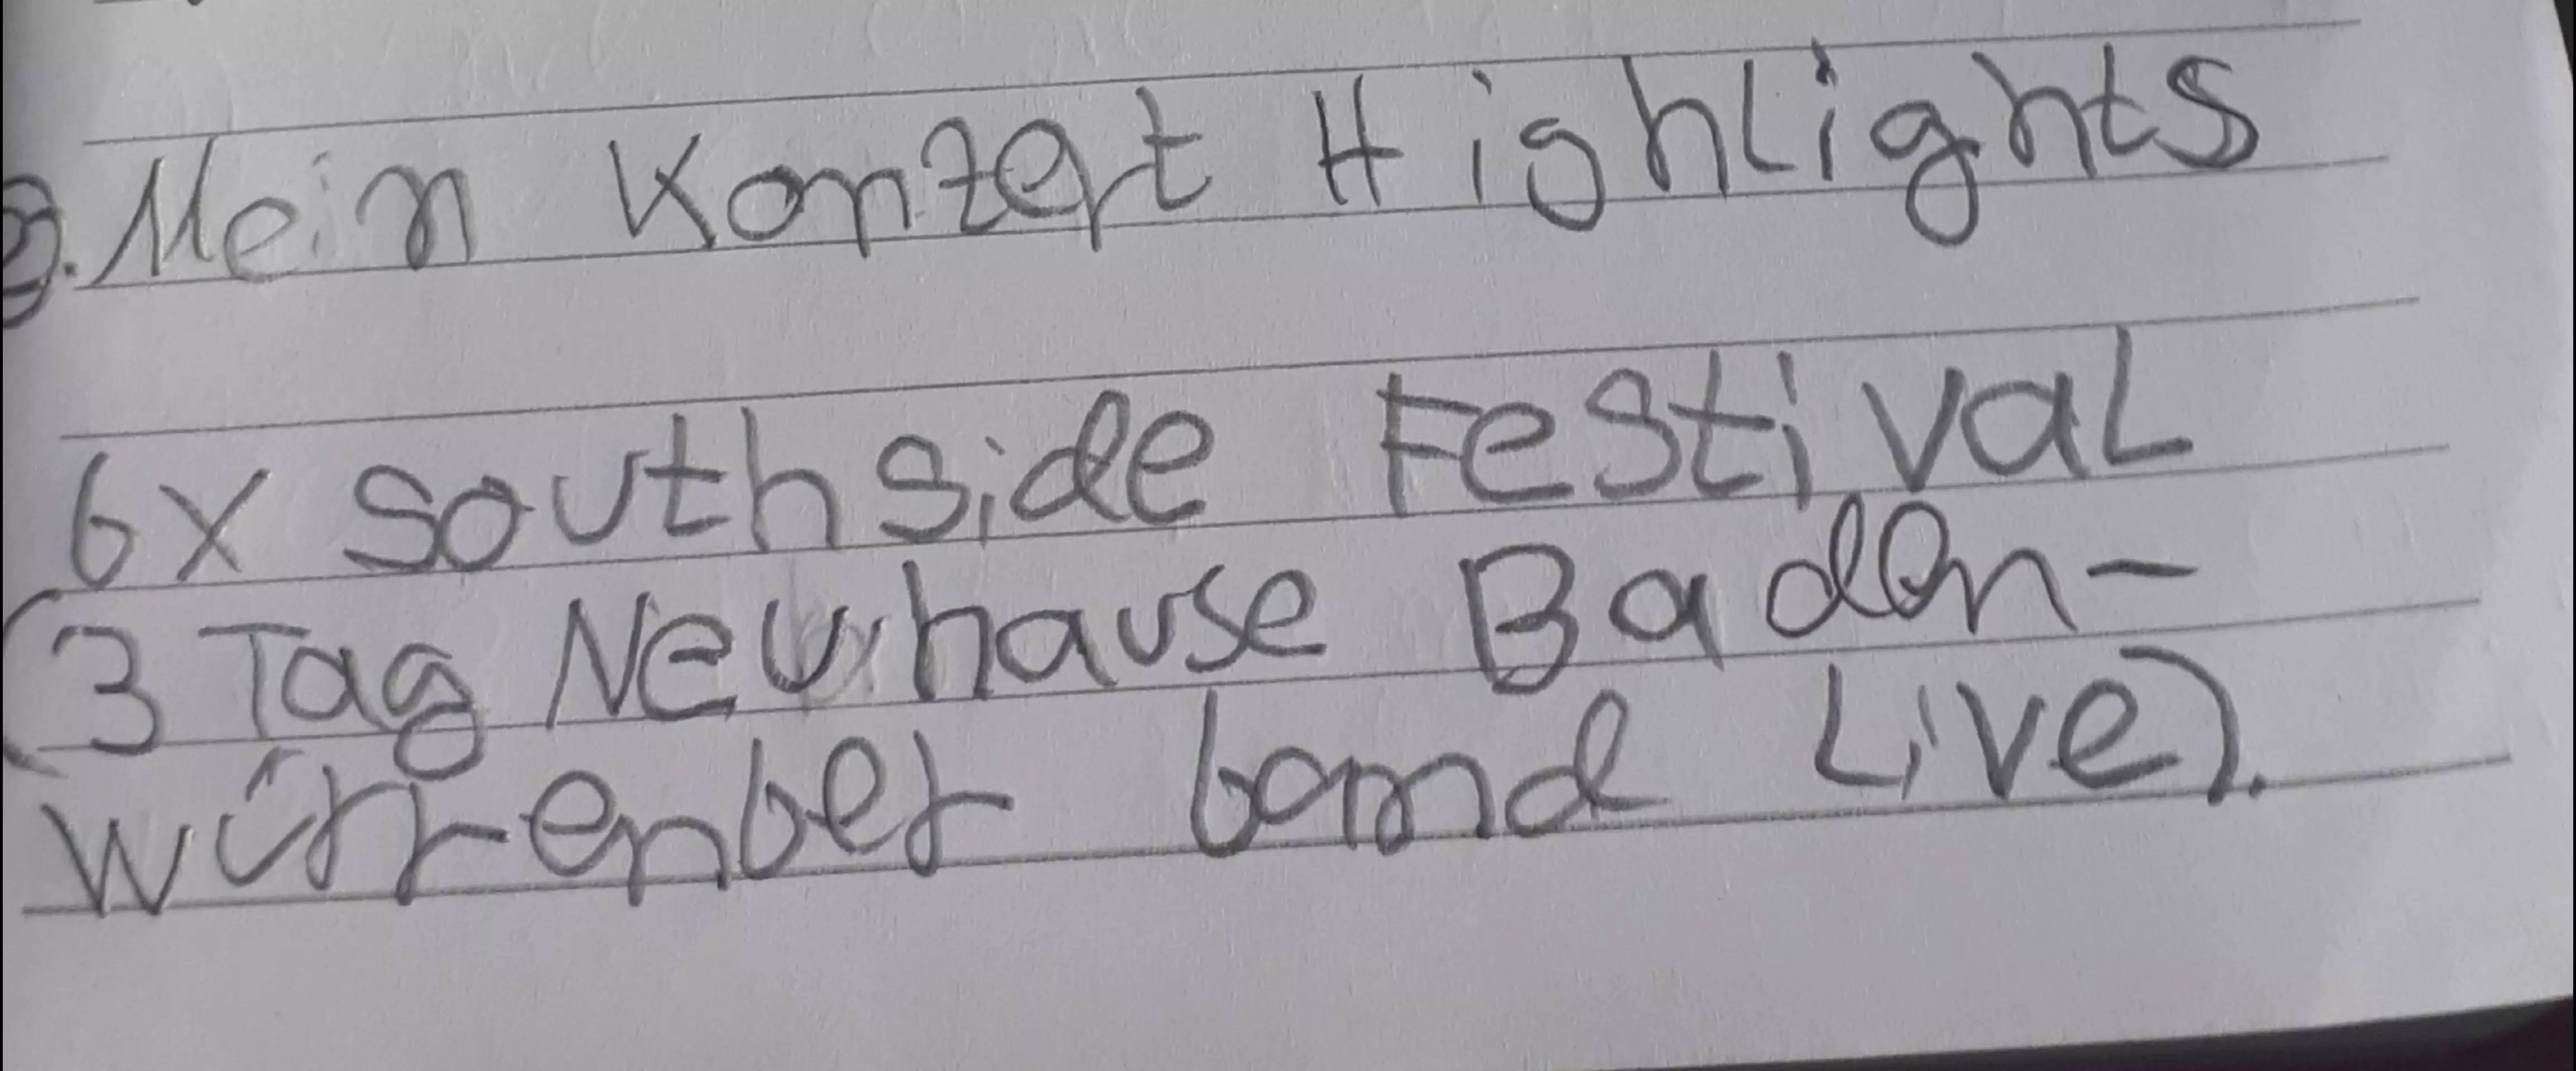 3. Mein Konzert Highlights
6x Southside Festival
(3 Tag Neuhause Baden-
würrenber band Live).